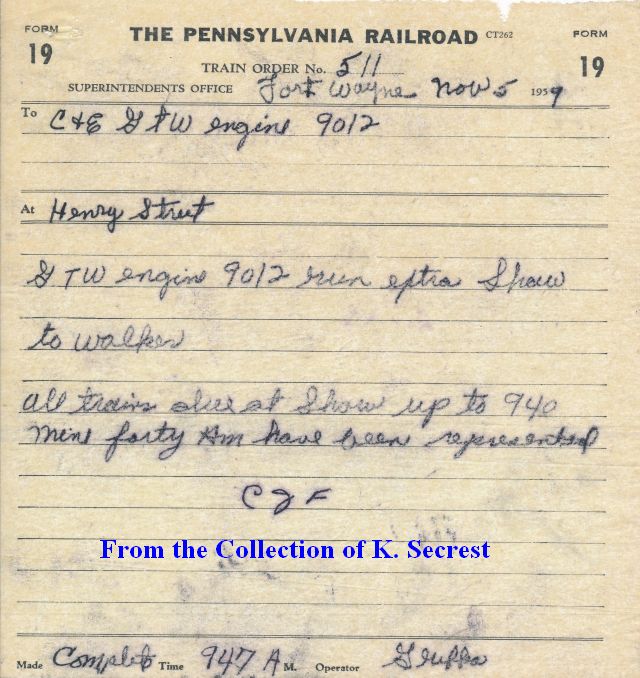 FORM 19
THE PENNSYLVANIA RAILROAD CT262
FORM 19
TRAIN ORDER No. 511
SUPERINTENDENTS OFFICE Fort Wayne Nov 5 1959
To C&E GTW engine 9012
At Henry Street
GTW engine 9012 run extra Shaw
to Walker
all trains due at Shaw up to 940
nine forty Am have been represented
From the Collection of K. Secrest
Made Complete Time 947 A M. Operator